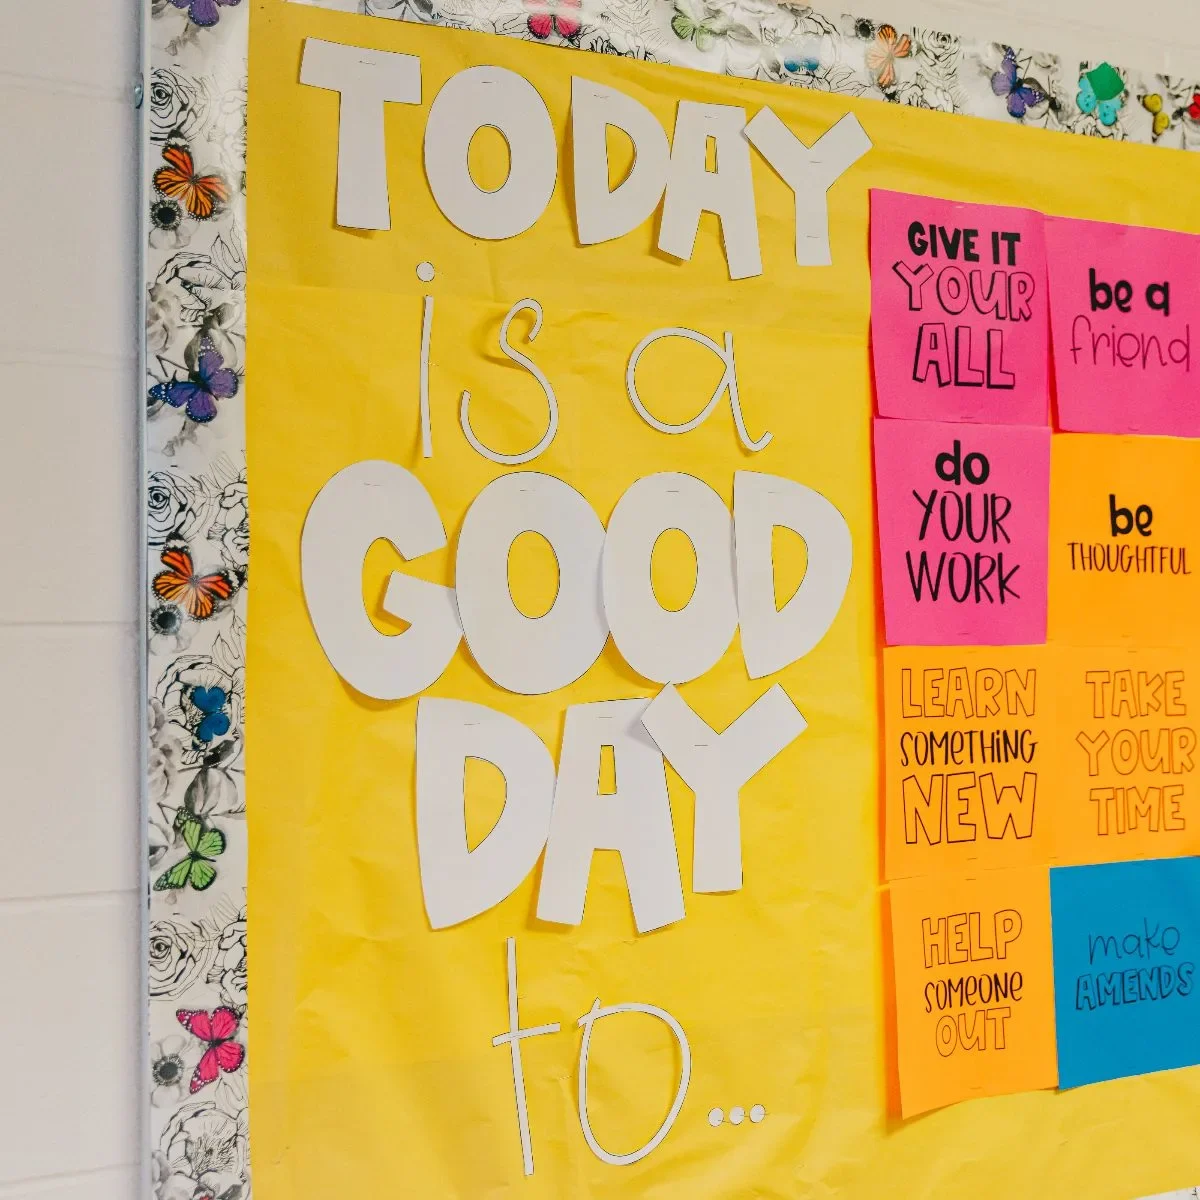 TODAY
is a
GOOD
DAY
to...
GIVE IT
YOUR
ALL
be a
friend
do
YOUR
WORK
be
THOUGHTFUL
LEARN
SOMETHING
NEW
TAKE
YOUR
TIME
HELP
SOMEONE
OUT
make
AMENDS